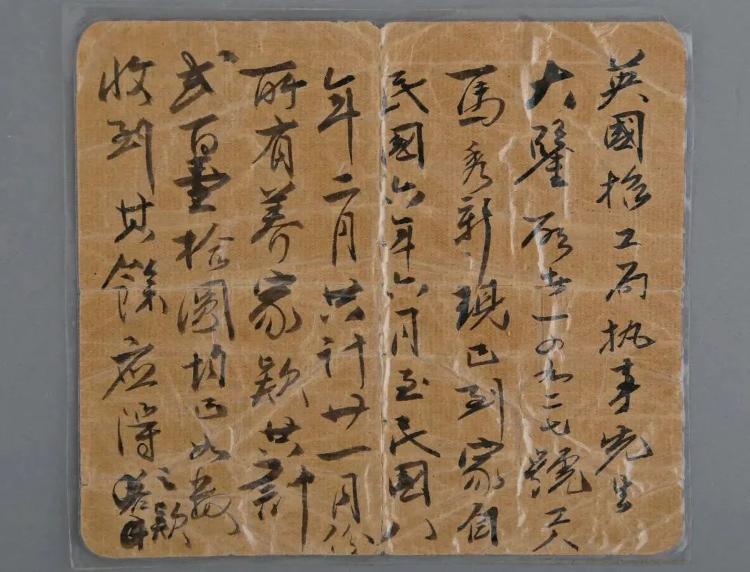 英國招工局执事先生
大鑒敬者一四九二七號工人
馬秀新現已到家自
民國六年六月至民國八
年二月共计廿一月份
所有养家欵共計
弍百壹拾圆均已如数
收到其餘应得之欵